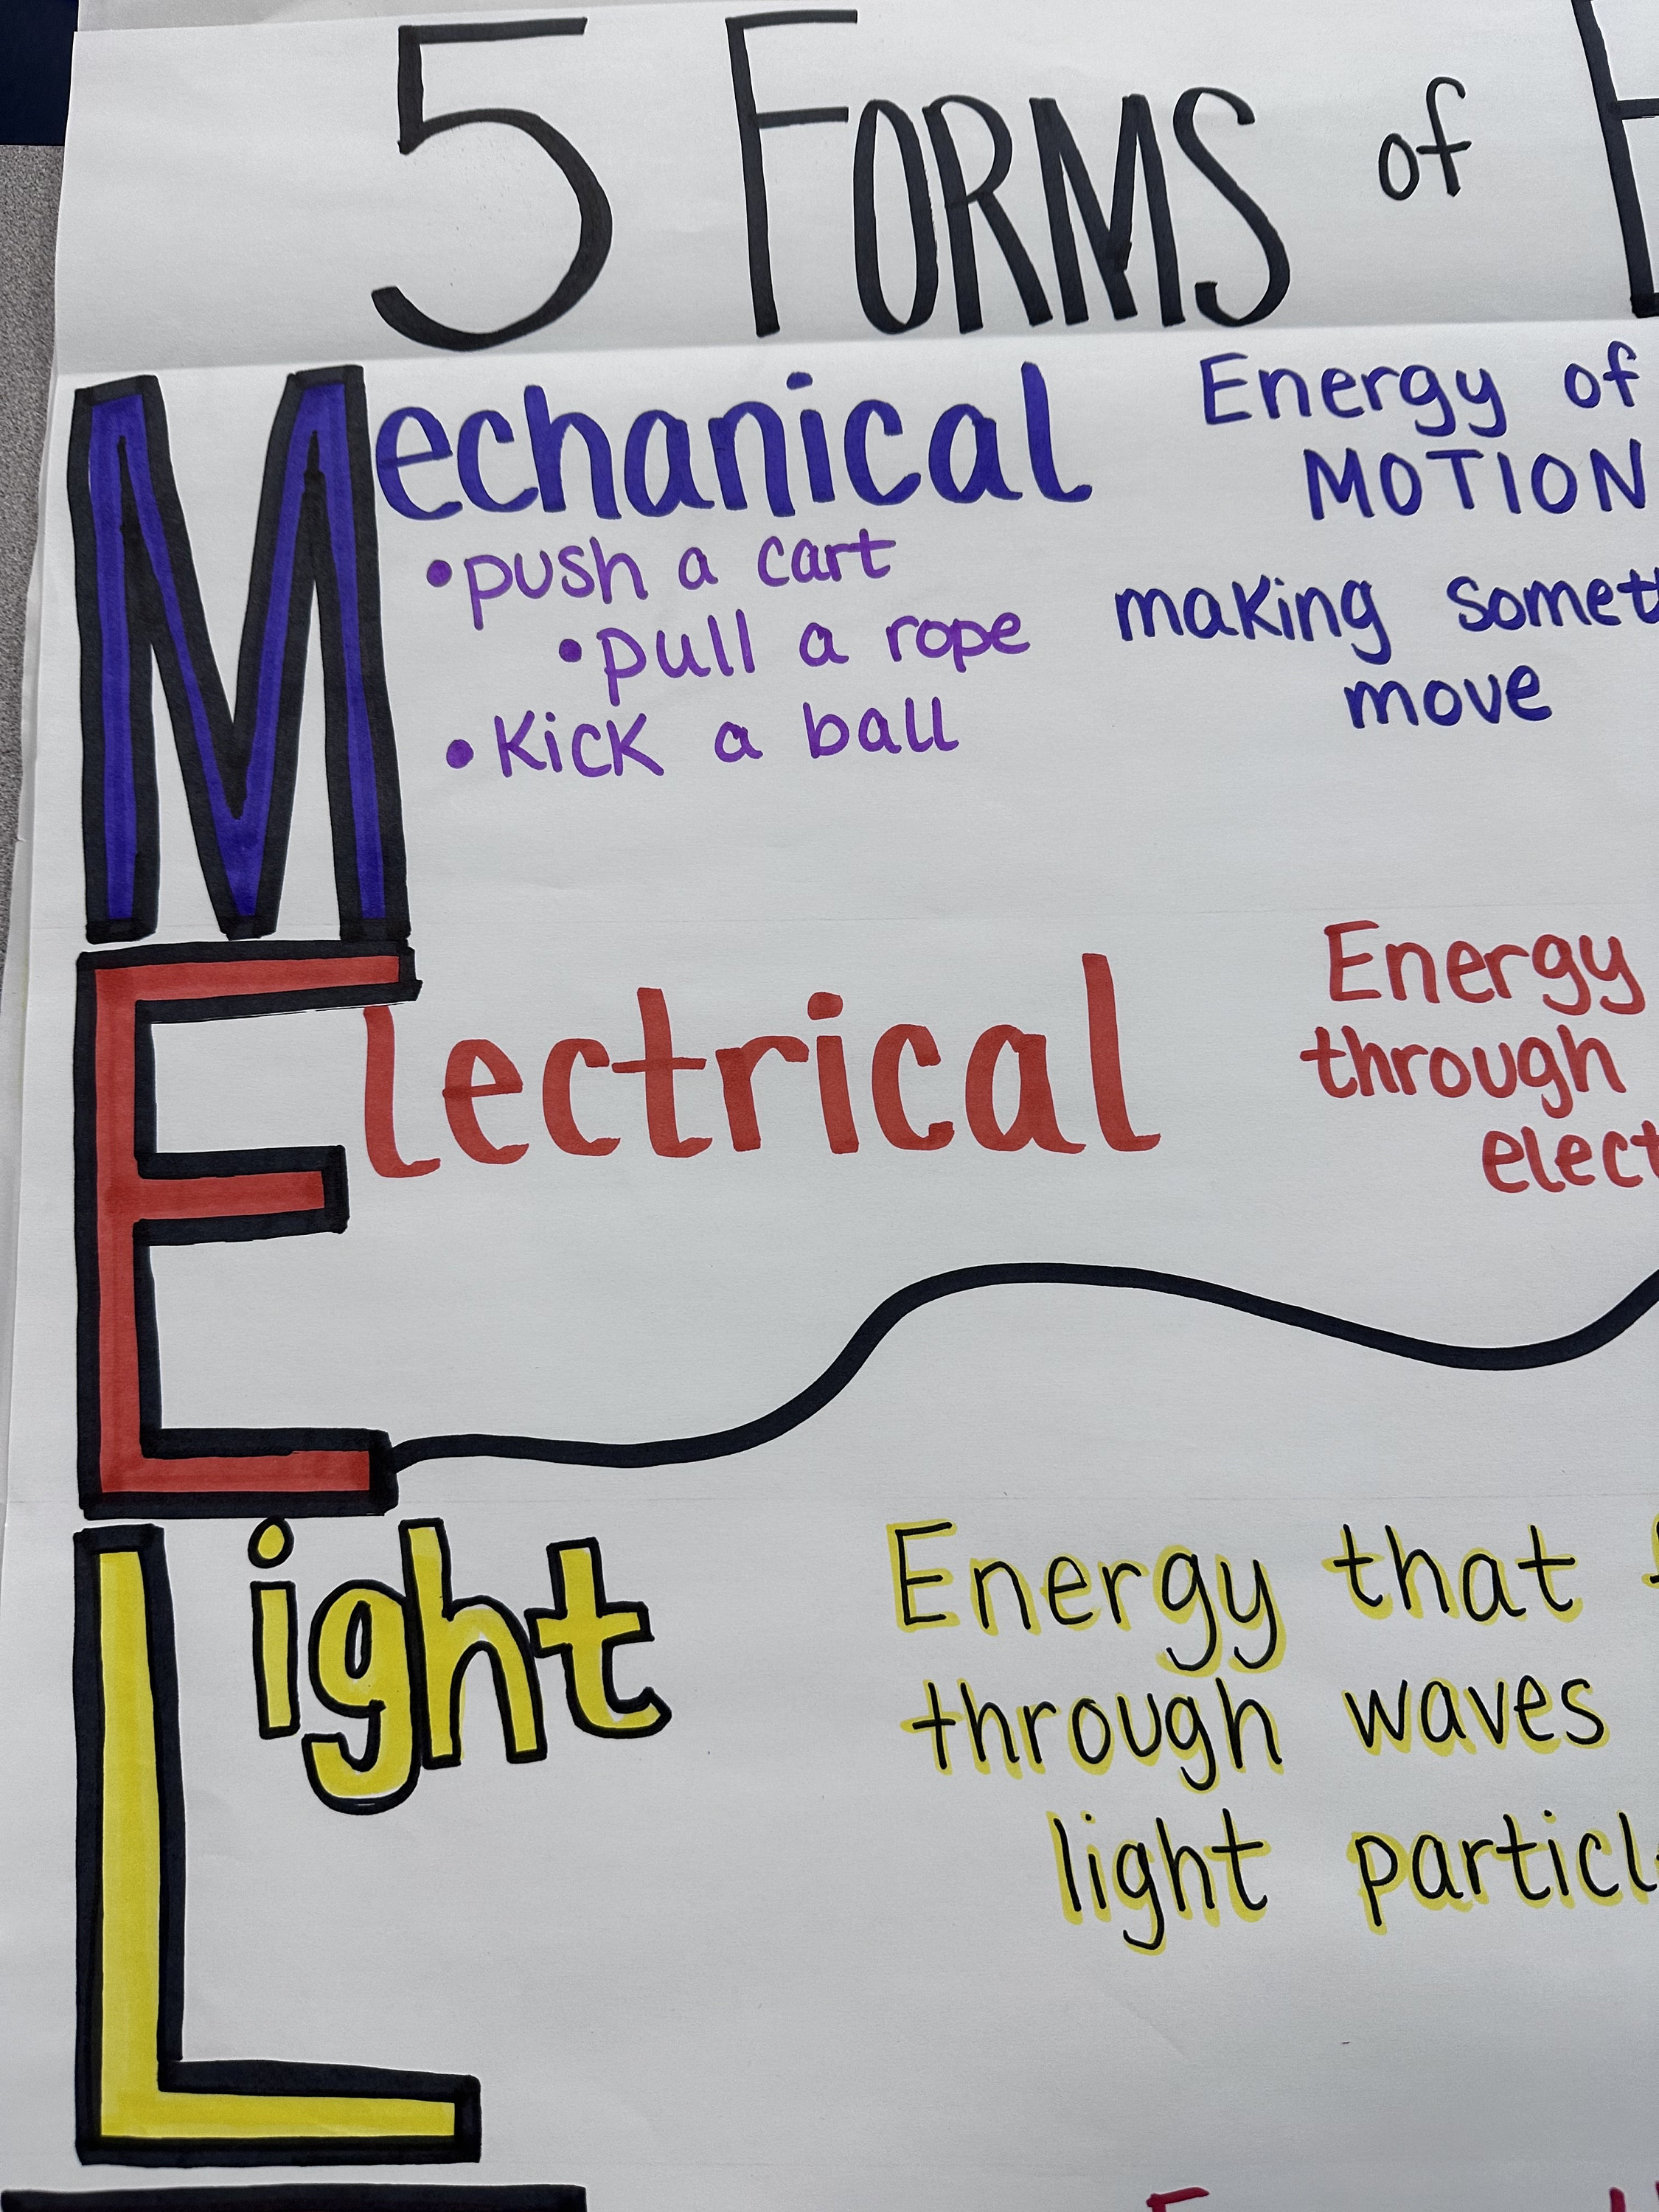 5 FORMS of
Mechanical
Energy of
MOTION
• push a cart
• pull a rope
• Kick a ball
making
move
Electrical
Energy
through
Light
Energy that
through waves
light